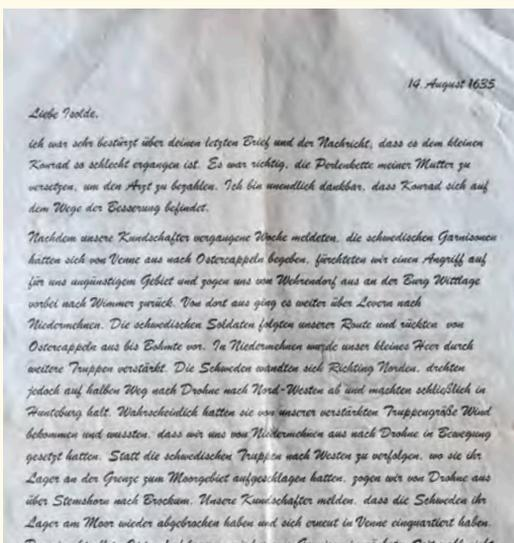 14. August 1635
Liebe Isolde,
ich war sehr bestürzt über deinen letzten Brief und der Nachricht, dass es dem kleinen
Konrad so schlecht ergangen ist. Es war richtig, die Perlenkette meiner Mutter zu
versetzen, um den Arzt zu bezahlen. Ich bin unendlich dankbar, dass Konrad sich auf
dem Wege der Besserung befindet.
Nachdem unsere Kundschafter vergangene Woche meldeten, die schwedischen Garnisonen
hätten sich von Venne aus nach Ostercappeln begeben, fürchteten wir einen Angriff auf
für uns ungünstigem Gebiet und zogen uns von Wehrendorf aus an der Burg Wittlage
vorbei nach Wimmer zurück. Von dort aus ging es weiter über Levern nach
Niedermehnen. Die schwedischen Soldaten folgten unserer Route und rückten von
Ostercappeln aus bis Bohmte vor. In Niedermehnen wurde unser kleines Heer durch
weitere Truppen verstärkt. Die Schweden wandten sich Richting Norden, drehten
jedoch auf halben Weg nach Drohne nach Nord-Westen ab und machten schließlich in
Hunteburg halt. Wahrscheinlich hatten sie von unserer verstärkten Truppengröße Wind
bekommen und wussten, dass wir uns von Niedermehnen aus nach Drohne in Bewegung
gesetzt hatten. Statt die schwedischen Truppen nach Westen zu verfolgen, wo sie ihr
Lager an der Grenze zum Moorgebiet aufgeschlagen hatten, zogen wir von Drohne aus
über Stemshorn nach Brockum. Unsere Kundschafter melden, dass die Schweden ihr
Lager am Moor wieder abgebrochen haben und sich erneut in Venne einquartiert haben.